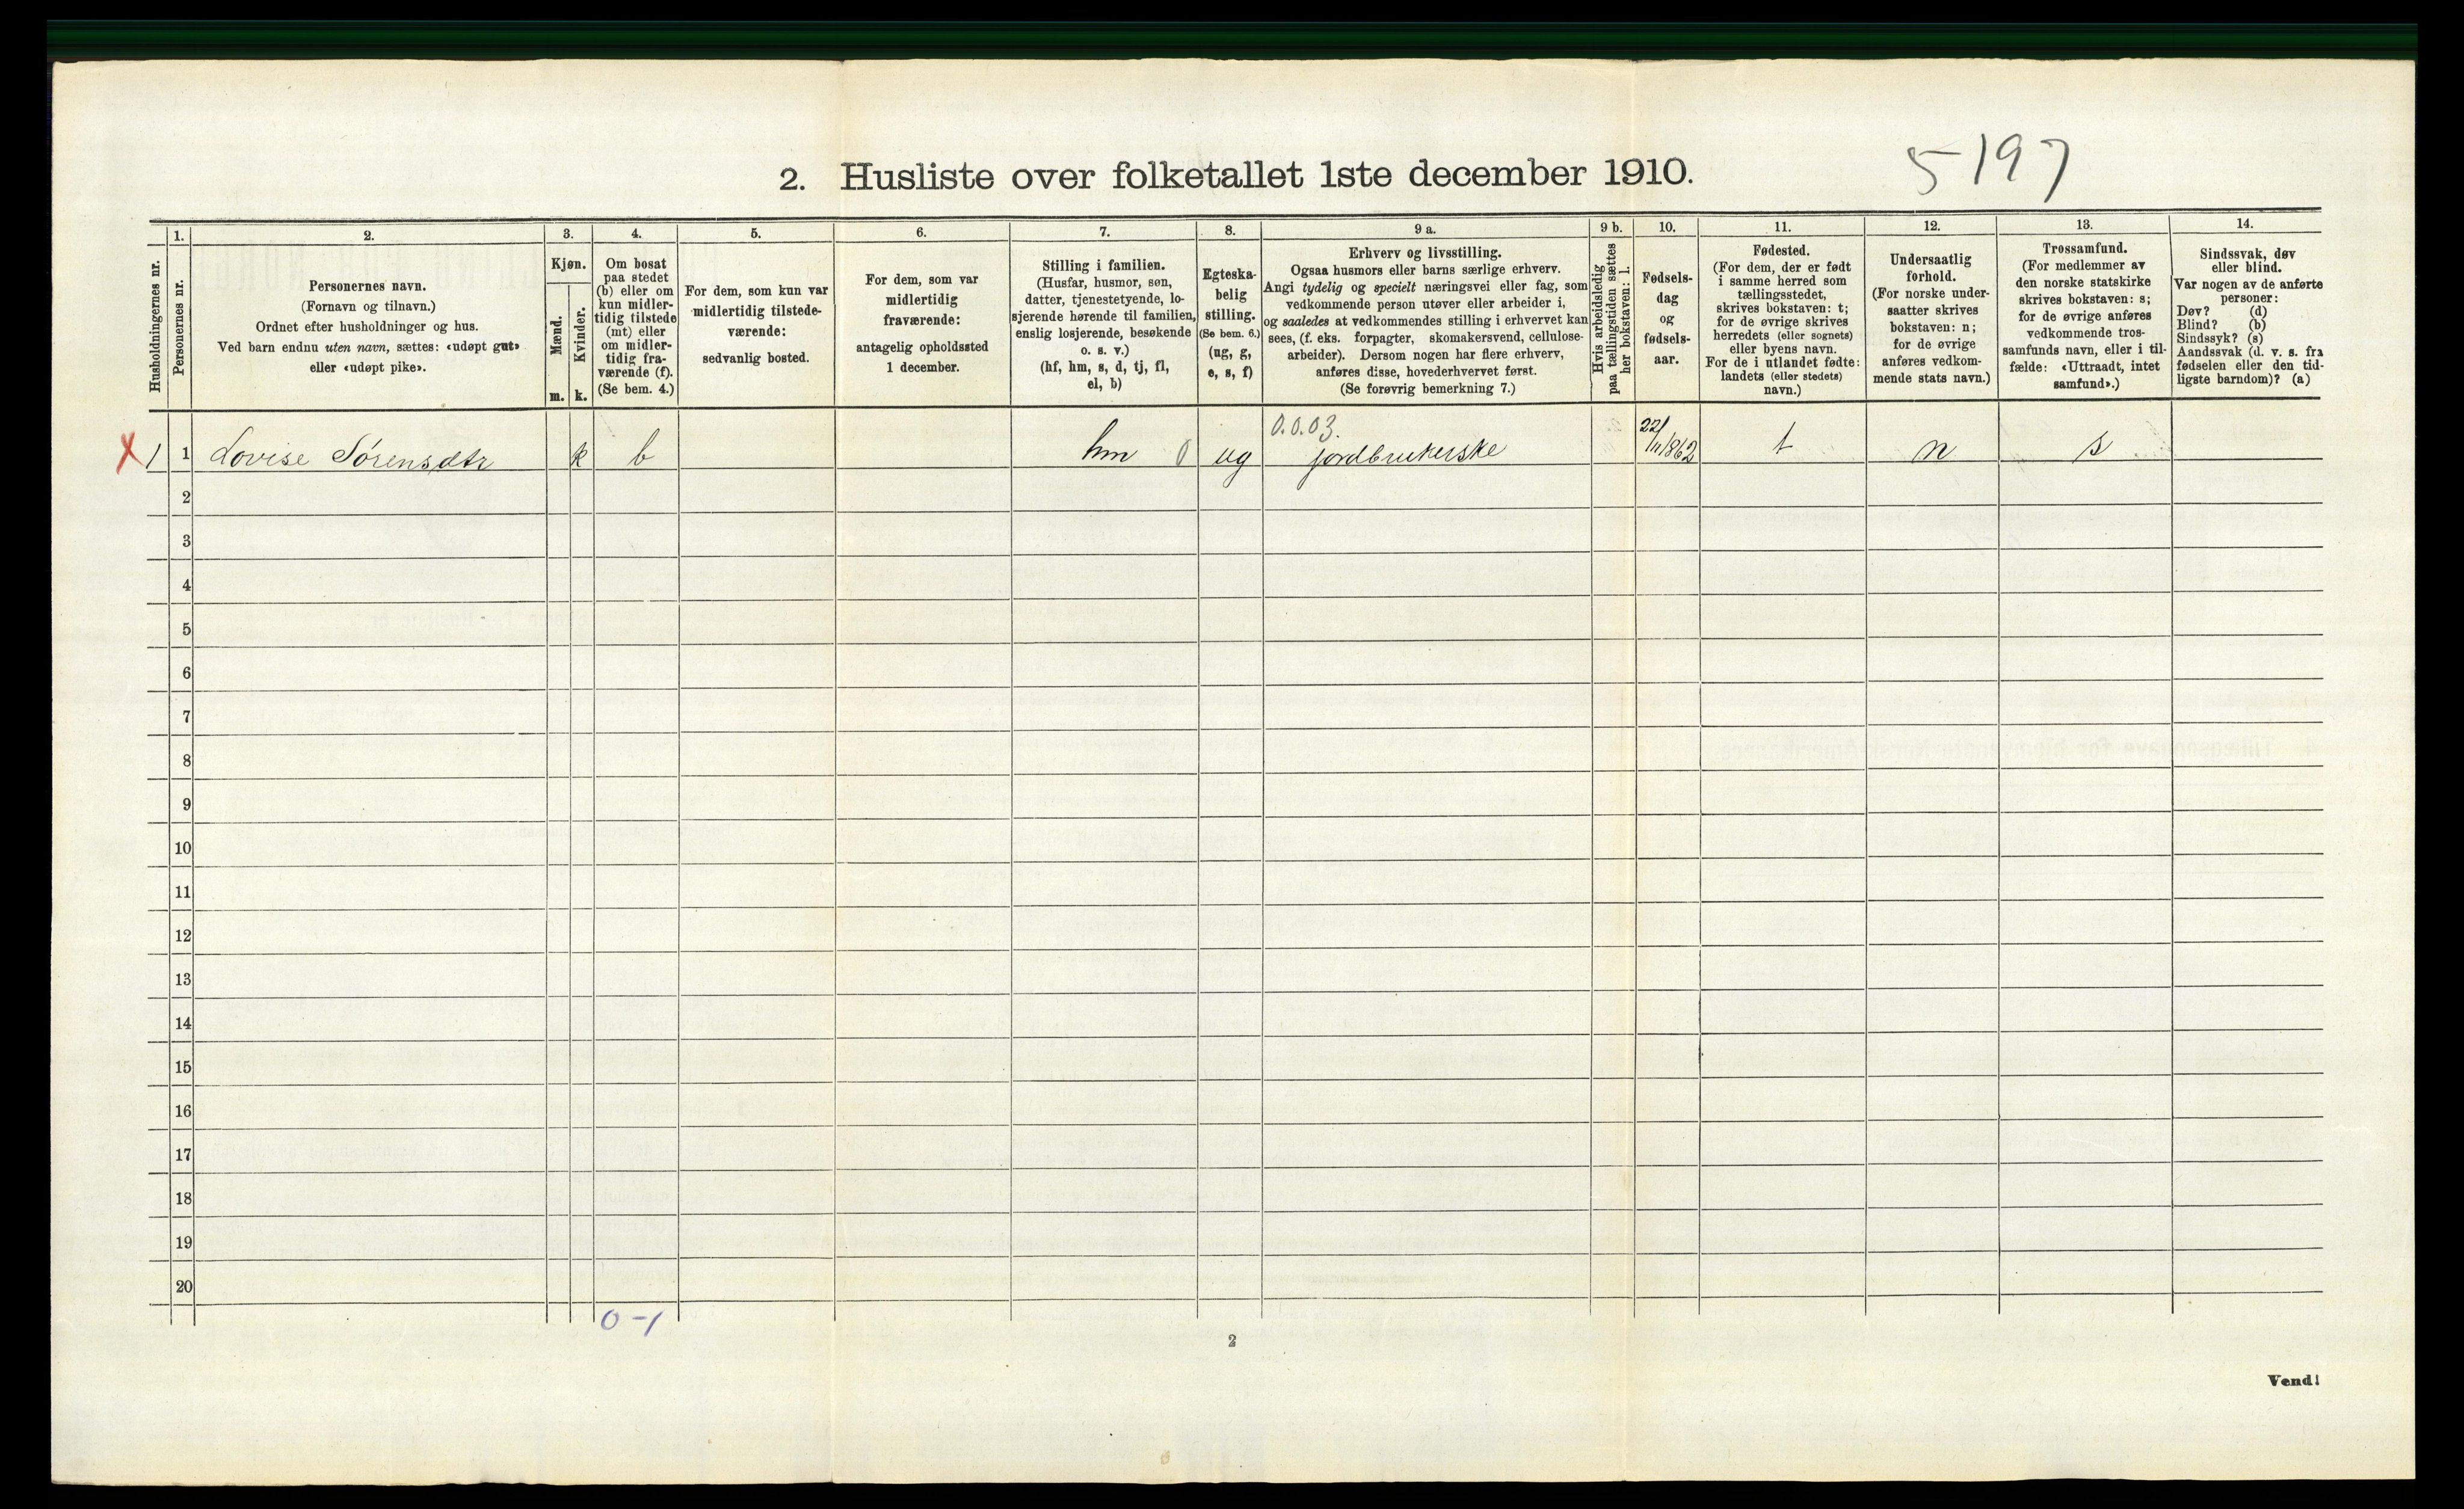 2. Husliste over folketallet 1ste december 1910.
5197
1. 2. 3. 4. 5. 6. 7. 8. 9 a. 9 b. 10. 11. 12. 13. 14.
Husholdningernes nr.
Personernes nr.
Personernes navn.
(Fornavn og tilnavn.)
Ordnet efter husholdninger og hus.
Ved barn endnu uten navn, sættes: «udøpt gut»
eller «udøpt pike».
Kjøn.
Mænd.
Kvinder.
m. k.
Om bosat
paa stedet
(b) eller om
kun midler-
tidig tilstede
(mt) eller
om midler-
tidig fra-
værende (f).
(Se bem. 4.)
For dem, som kun var
midlertidig tilstede-
værende:
sedvanlig bosted.
For dem, som var
midlertidig
fraværende:
antagelig opholdssted
1 december.
Stilling i familien.
(Husfar, husmor, søn,
datter, tjenestetyende, lo-
sjerende hørende til familien,
enslig losjerende, besøkende
o. s. v.)
(hf, hm, s, d, tj, fl,
el, b)
Egteska-
belig
stilling.
(Se bem. 6.)
(ug, g,
e, s, f)
Erhverv og livsstilling.
Ogsaa husmors eller barns særlige erhverv.
Angi tydelig og specielt næringsvei eller fag, som
vedkommende person utøver eller arbeider i,
og saaledes at vedkommendes stilling i erhvervet kan
sees, (f. eks. forpagter, skomakersvend, cellulose-
arbeider). Dersom nogen har flere erhverv,
anføres disse, hovederhvervet først.
(Se forøvrig bemerkning 7.)
Hvis arbeidsledig
paa tællingstiden sættes
her bokstaven: l.
Fødsels-
dag
og
fødsels-
aar.
Fødested.
(For dem, der er født
i samme herred som
tællingsstedet,
skrives bokstaven: t;
for de øvrige skrives
herredets (eller sognets)
eller byens navn.
For de i utlandet fødte:
landets (eller stedets)
navn.)
Undersaatlig
forhold.
(For norske under-
saatter skrives
bokstaven: n;
for de øvrige
anføres vedkom-
mende stats navn.)
Trossamfund.
(For medlemmer av
den norske statskirke
skrives bokstaven: s;
for de øvrige anføres
vedkommende tros-
samfunds navn, eller i til-
fælde: «Uttraadt, intet
samfund».)
Sindssvak, døv
eller blind.
Var nogen av de anførte
personer:
Døv? (d)
Blind? (b)
Sindssyk? (s)
Aandssvak (d. v. s. fra
fødselen eller den tid-
ligste barndom)? (a)
0.0.03.
X 1 1 Lovise Sørensdtr k b hm 0 ug jordbrukerske 22/11 1862 t n s
2
3
4
5
6
7
8
9
10
11
12
13
14
15
16
17
18
19
20
0-1
2
Vend!